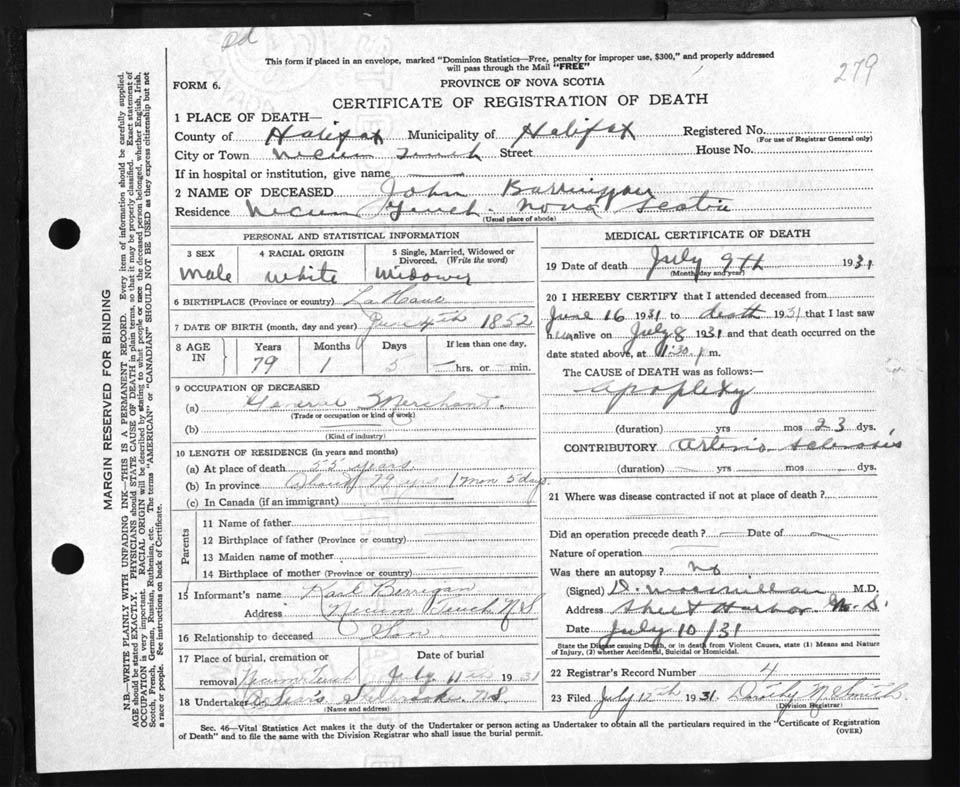 279
This form if placed in an envelope, marked "Dominion Statistics—Free, penalty for improper use, $300," and properly addressed
will pass through the Mail "FREE"
FORM 6.
PROVINCE OF NOVA SCOTIA
CERTIFICATE OF REGISTRATION OF DEATH
1 PLACE OF DEATH—
County of Halifax Municipality of Halifax Registered No.
(For use of Registrar General only)
City or Town Necum Teuch Street House No.
If in hospital or institution, give name —
2 NAME OF DECEASED John
Residence Necum Teuch Nova Scotia
(Usual place of abode)
PERSONAL AND STATISTICAL INFORMATION
3 SEX
Male
4 RACIAL ORIGIN
White
5 Single, Married, Widowed or
Divorced. (Write the word)
Widower
6 BIRTHPLACE (Province or country) LaHave
7 DATE OF BIRTH (month, day and year) June 4th 1852
8 AGE
IN
Years
79
Months
1
Days
5
If less than one day,
— hrs. or — min.
9 OCCUPATION OF DECEASED
(a) General Merchant.
(Trade or occupation or kind of work)
(b) —
(Kind of industry)
10 LENGTH OF RESIDENCE (in years and months)
(a) At place of death 55 years
(b) In province About 79 yrs 1 mon 5 days
(c) In Canada (if an immigrant)
Parents
11 Name of father
12 Birthplace of father (Province or country)
13 Maiden name of mother
14 Birthplace of mother (Province or country)
15 Informant's name Karl Berrigan
Address Necum Teuch N S
16 Relationship to deceased Son
17 Place of burial, cremation or
removal Necum Teuch
Date of burial
July 11th 1931
18 Undertaker Sherbrooke N.S.
(Name and address)
MEDICAL CERTIFICATE OF DEATH
19 Date of death July 9th 1931
(Month, day and year)
20 I HEREBY CERTIFY that I attended deceased from
June 16 1931 to death 1931 that I last saw
him alive on July 8 1931 and that death occurred on
date stated above, at 1:30 p m.
The CAUSE of DEATH was as follows:—
apoplexy
(duration) yrs mos 23 dys.
CONTRIBUTORY Arterio sclerosis
(duration) — yrs — mos — dys.
21 Where was disease contracted if not at place of death?
Did an operation precede death? — Date of —
Nature of operation —
Was there an autopsy? no
(Signed) D. Macmillan M.D.
Address Sheet Harbor N.S.
Date July 10/31
State the Disease causing Death, or in death from Violent Causes, state (1) Means and Nature
of Injury, (2) whether Accidental, Suicidal or Homicidal.
22 Registrar's Record Number 4
23 Filed July 12th 1931 Dorothy N. Smith
(Division Registrar)
Sec. 46—Vital Statistics Act makes it the duty of the Undertaker or person acting as Undertaker to obtain all the particulars required in the "Certificate of Registration
of Death" and to file the same with the Division Registrar who shall issue the burial permit.
(OVER)
MARGIN RESERVED FOR BINDING
N.B.—WRITE PLAINLY WITH UNFADING INK—THIS IS A PERMANENT RECORD. Every item of information should be carefully supplied.
AGE should be stated EXACTLY. PHYSICIANS should STATE CAUSE OF DEATH in plain terms, so that it may be properly classified. Exact statement of
OCCUPATION is very important. RACIAL ORIGIN will be described by stating to what people or race the deceased person belonged, whether English, Irish,
Scotch, French, German, Russian, Ruthenian, etc. The terms "AMERICAN" or "CANADIAN" SHOULD NOT BE USED as they express citizenship but not
a race or people. See instructions on back of Certificate.